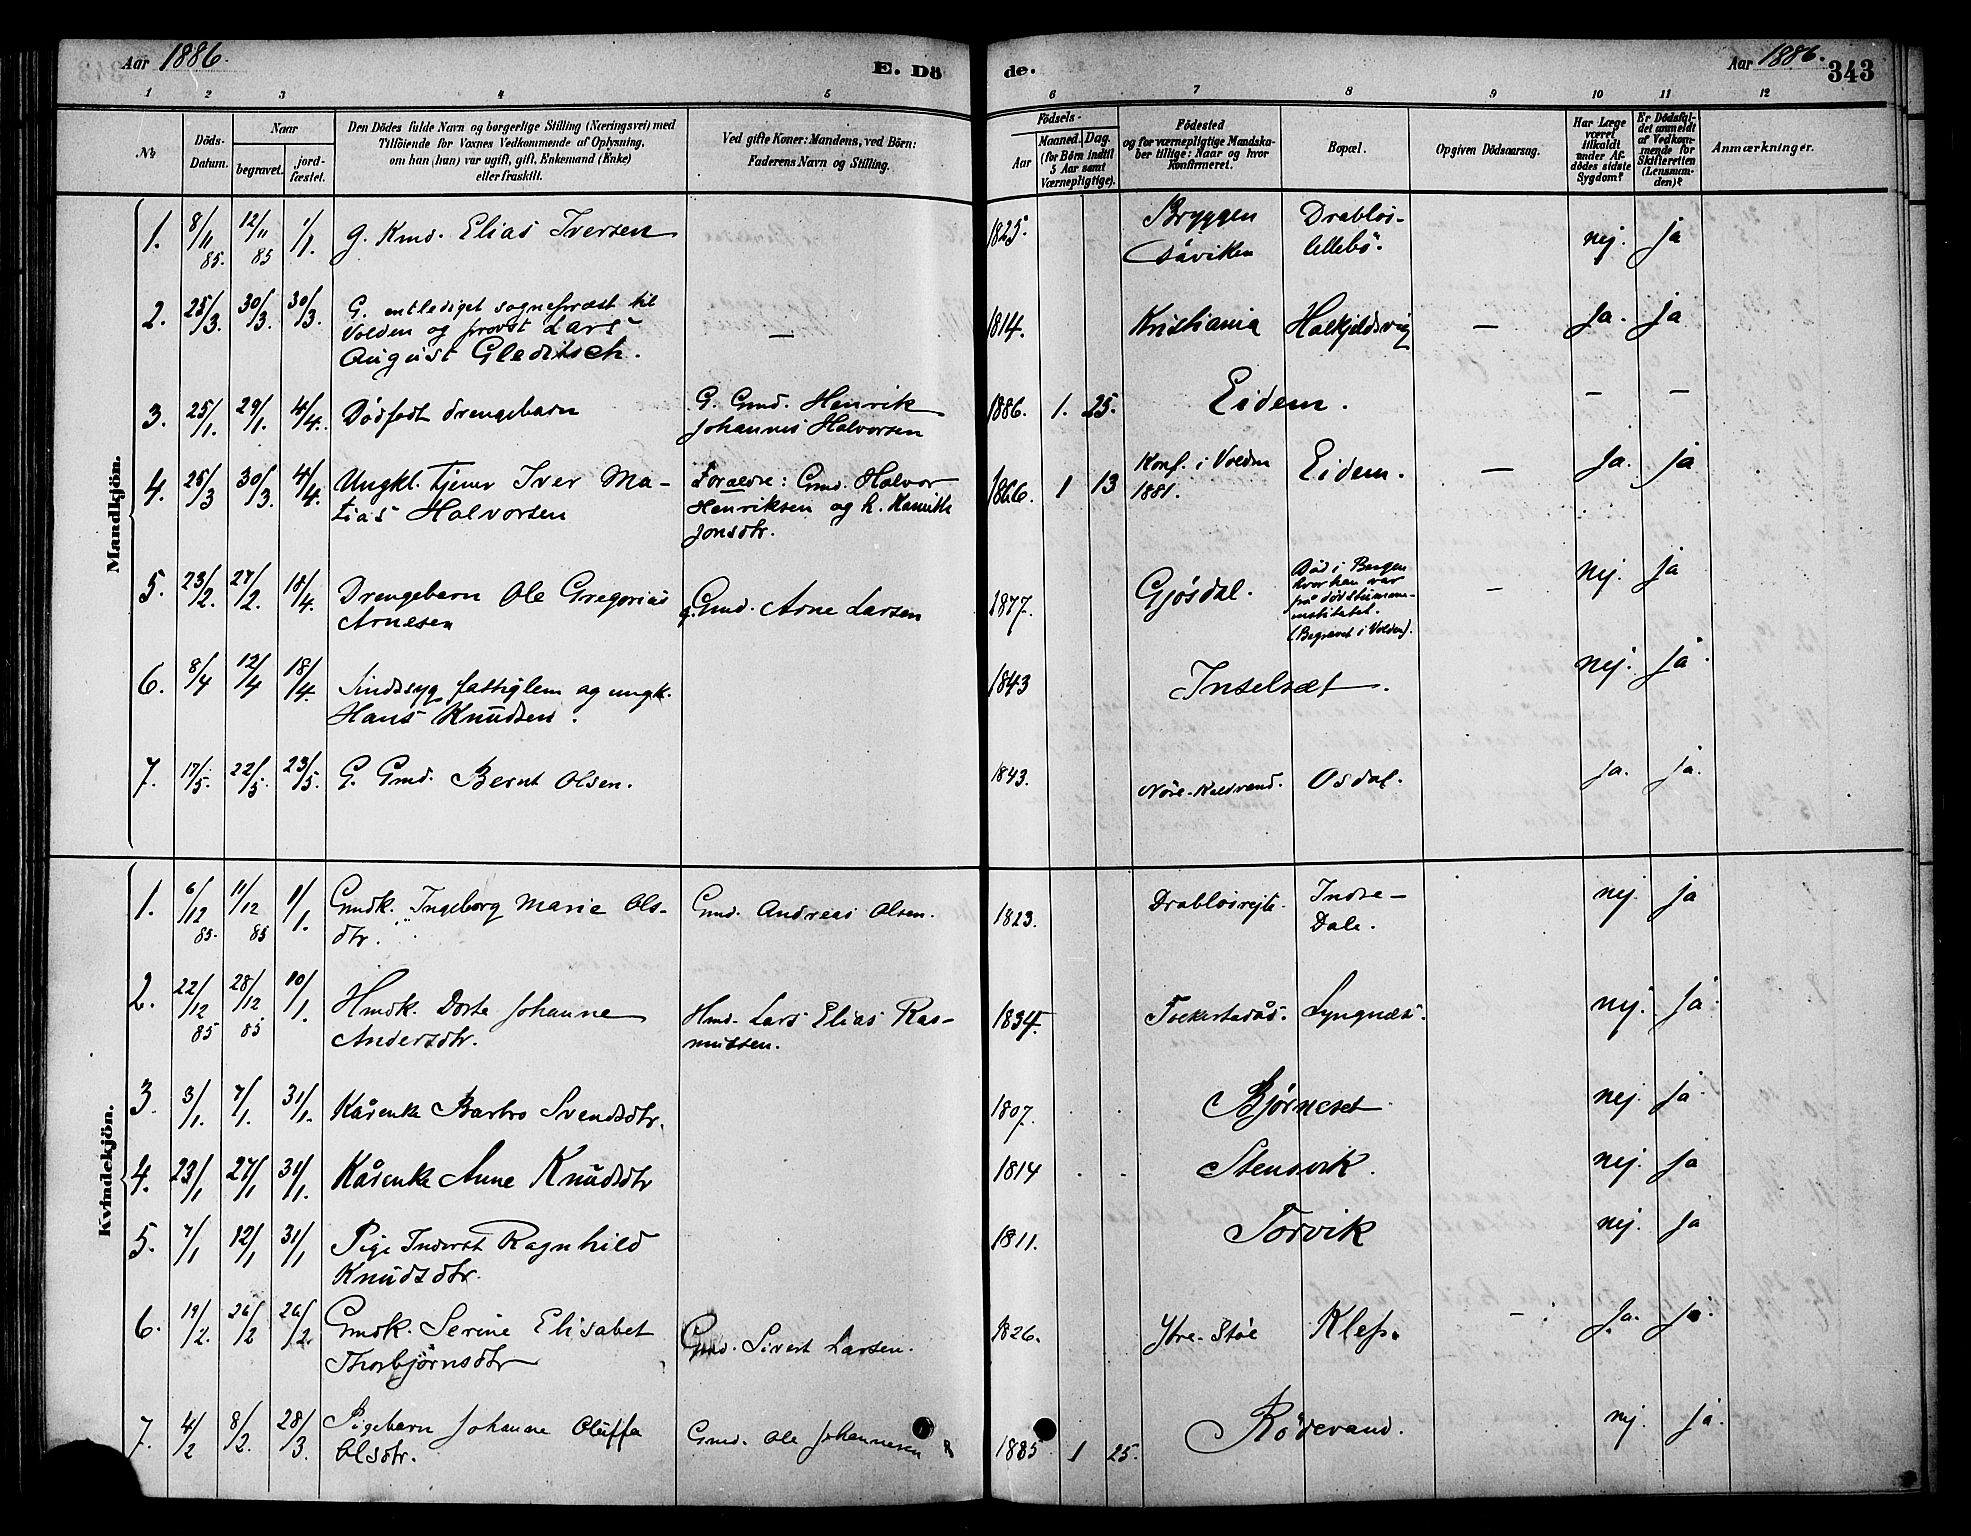 Aar 1886.
E. Dö
de.
Aar 1886.
343
1 2 3 4 5 6 7 8 9 10 11 12
No
Döds-
Datum.
Naar
begravet.
jord-
fæstet.
Den Dödes fulde Navn og borgerlige Stilling (Næringsvei) med
Tilföiende for Voxnes Vedkommende af Oplysning,
om han (hun) var ugift, gift, Enkemand (Enke)
eller fraskilt.
Ved gifte Koner: Mandens, ved Börn:
Faderens Navn og Stilling.
Födsels-
Aar
Maaned. Dag.
(for Börn indtil
5 Aar samt
Værnepligtige).
Födested
og for værnepligtige Mandska-
ber tillige: Naar og hvor
konfirmeret.
Bopæl.
Opgiven Dödsaarsag.
Har Læge
været
tilkaldt
under Af-
dödes sidste
Sygdom?
Er Dödsfal-
det anmeldt
af Vedkom-
mende for
Skifteretten
(Lensman-
den)?
Anmærkninger.
Mandkjön.
1. 8/11 85. 12/11 85 1/1 g. Kmd. Elias Iversen 1825. Bryggen Drabløs- nej. ja
Søviken lillebø.
2. 25/3. 30/3. 30/3. G. entlediget sognepræst til
Volden og provst Lars — 1814. Kristiania — Ja. ja
August Gleditsch.
3. 25/1. 29/1. 4/4. Dødfødt drengebarn G. Gmd. Henrik 1886. 1. 25. Eidem. — —
Johannes Halvorsen
4. 25/3 30/3. 4/4. Ungkl. tjener Iver Ma- Forældre: Gmd. Halvor 1866. 1 13 Konf. i Volden Eidem. — Ja. ja
tias Halvorsen Henriksen og h. 1881.
Jonsdtr.
5. 23/2. 27/2. 18/4. Drengebarn Ole Gregorius g. Gmd. Arne Larsen 1877. Gjøsdal. Død i Bergen — nej. ja
Arnesen hvor han var
på døvstumme-
institutet.
(Begravet i Volden).
6. 8/4 12/4 18/4. Sindssyg fattiglem og ungk. 1843 Inselsæt. nej. ja
Hans Knudsen.
7. 17/5. 22/5. 23/5. G. Gmd. Bernt Olsen. 1843. Osdal. ja. ja.
Kvindekjön.
1. 6/12 85. 11/12 85 1/1. Gmdk. Ingeborg Marie Ols- Gmd. Andreas Olsen. 1823. Indre- nej. ja
dtr. Dale.
2. 22/12 85 28/12 85 10/1. Hmdk. Dorte Johanne Hmd. Lars Elias Ras- 1834. Lyngnæs. nej. ja.
Andersdtr. mussen.
3. 3/1. 7/1. 31/1. Kårenke Barbro Svendsdtr. 1807. Bjørneset nej. ja.
4. 23/1 27/1 31/1. Kårenke Anne Knudsdtr 1814 Stensvik. nej. ja
5. 7/1 12/1 31/1 Pige Inderst Ragnhild 1811. Torvik nej. ja
Knudsdtr.
6. 19/2. 26/2 26/2. Gmdk. Serine Elisabet Gmd. Sivert Larsen. 1826. Ytre-Støe Klep. — Ja. ja.
Thorbjørnsdtr
7. 4/2 8/2. 28/3. Pigebarn Johanne Oluffa Gmd. Ole Johannesen 1885 1 25. Rødevand. nej. ja.
Olsdtr.